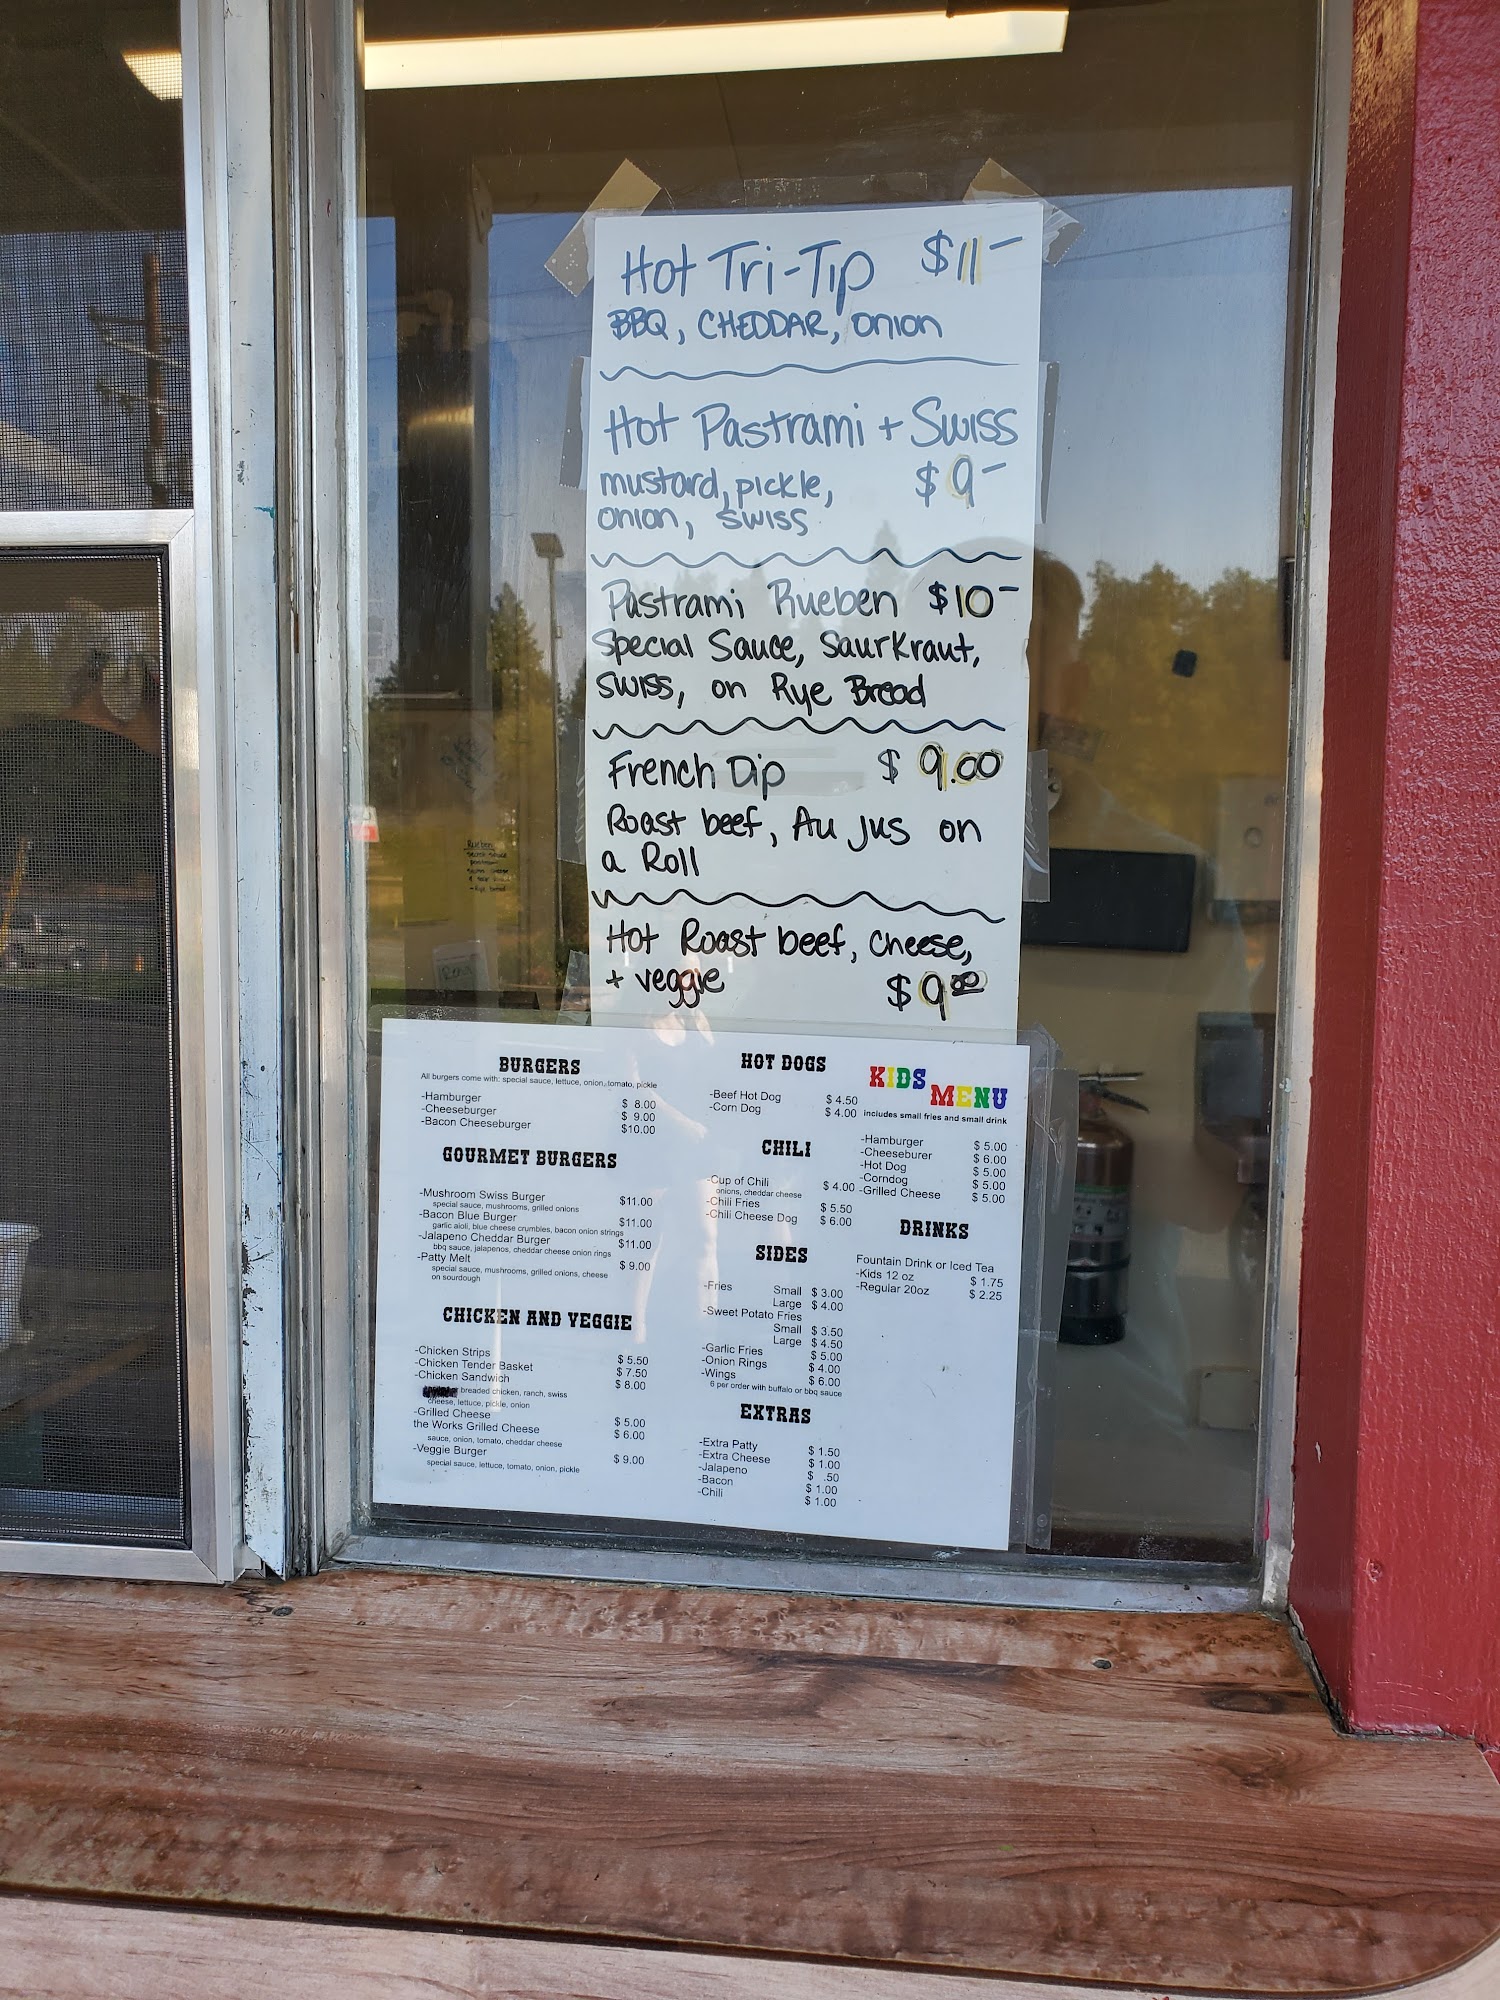 Hot Tri-Tip $11-
BBQ, CHEDDAR, onion
Hot Pastrami + Swiss
mustard, pickle, $9-
onion, swiss
Pastrami Rueben $10-
Special Sauce, SaurKraut,
Swiss, on Rye Bread
French Dip $9.00
Roast beef, Au jus on
a Roll
Hot Roast beef, cheese,
+ veggie $9.00
Rueben
BURGERS
All burgers come with: special sauce, lettuce, onion, tomato, pickle
-Hamburger $ 8.00
-Cheeseburger $ 9.00
-Bacon Cheeseburger $10.00
GOURMET BURGERS
-Mushroom Swiss Burger $11.00
special sauce, mushrooms, grilled onions
-Bacon Blue Burger $11.00
garlic aioli, blue cheese crumbles, bacon onion strings
-Jalapeno Cheddar Burger $11.00
bbq sauce, jalapenos, cheddar cheese onion rings
-Patty Melt $ 9.00
special sauce, mushrooms, grilled onions, cheese
on sourdough
CHICKEN AND VEGGIE
-Chicken Strips $ 5.50
-Chicken Tender Basket $ 7.50
-Chicken Sandwich $ 8.00
breaded chicken, ranch, swiss
cheese, lettuce, pickle, onion
-Grilled Cheese $ 5.00
the Works Grilled Cheese $ 6.00
sauce, onion, tomato, cheddar cheese
-Veggie Burger $ 9.00
special sauce, lettuce, tomato, onion, pickle
HOT DOGS
-Beef Hot Dog $ 4.50
-Corn Dog $ 4.00
CHILI
-Cup of Chili $ 4.00
onions, cheddar cheese
-Chili Fries $ 5.50
-Chili Cheese Dog $ 6.00
SIDES
-Fries Small $ 3.00
Large $ 4.00
-Sweet Potato Fries
Small $ 3.50
Large $ 4.50
-Garlic Fries $ 5.00
-Onion Rings $ 4.00
-Wings $ 6.00
6 per order with buffalo or bbq sauce
EXTRAS
-Extra Patty $ 1.50
-Extra Cheese $ 1.00
-Jalapeno $ .50
-Bacon $ 1.00
-Chili $ 1.00
KIDS MENU
includes small fries and small drink
-Hamburger $ 5.00
-Cheeseburer $ 6.00
-Hot Dog $ 5.00
-Corndog $ 5.00
-Grilled Cheese $ 5.00
DRINKS
Fountain Drink or Iced Tea
-Kids 12 oz $ 1.75
-Regular 20oz $ 2.25